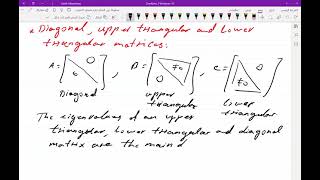 Diagonal, upper triangular and Lower
triangular matrices.
A = [ 0 0 ] , B = [ ≠0 0 ] , C = [ 0 ≠0 ]
Diagonal upper triangular lower triangular
The eigenvalues of an upper
triangular, lower triangular and diagonal
matrix are the main d